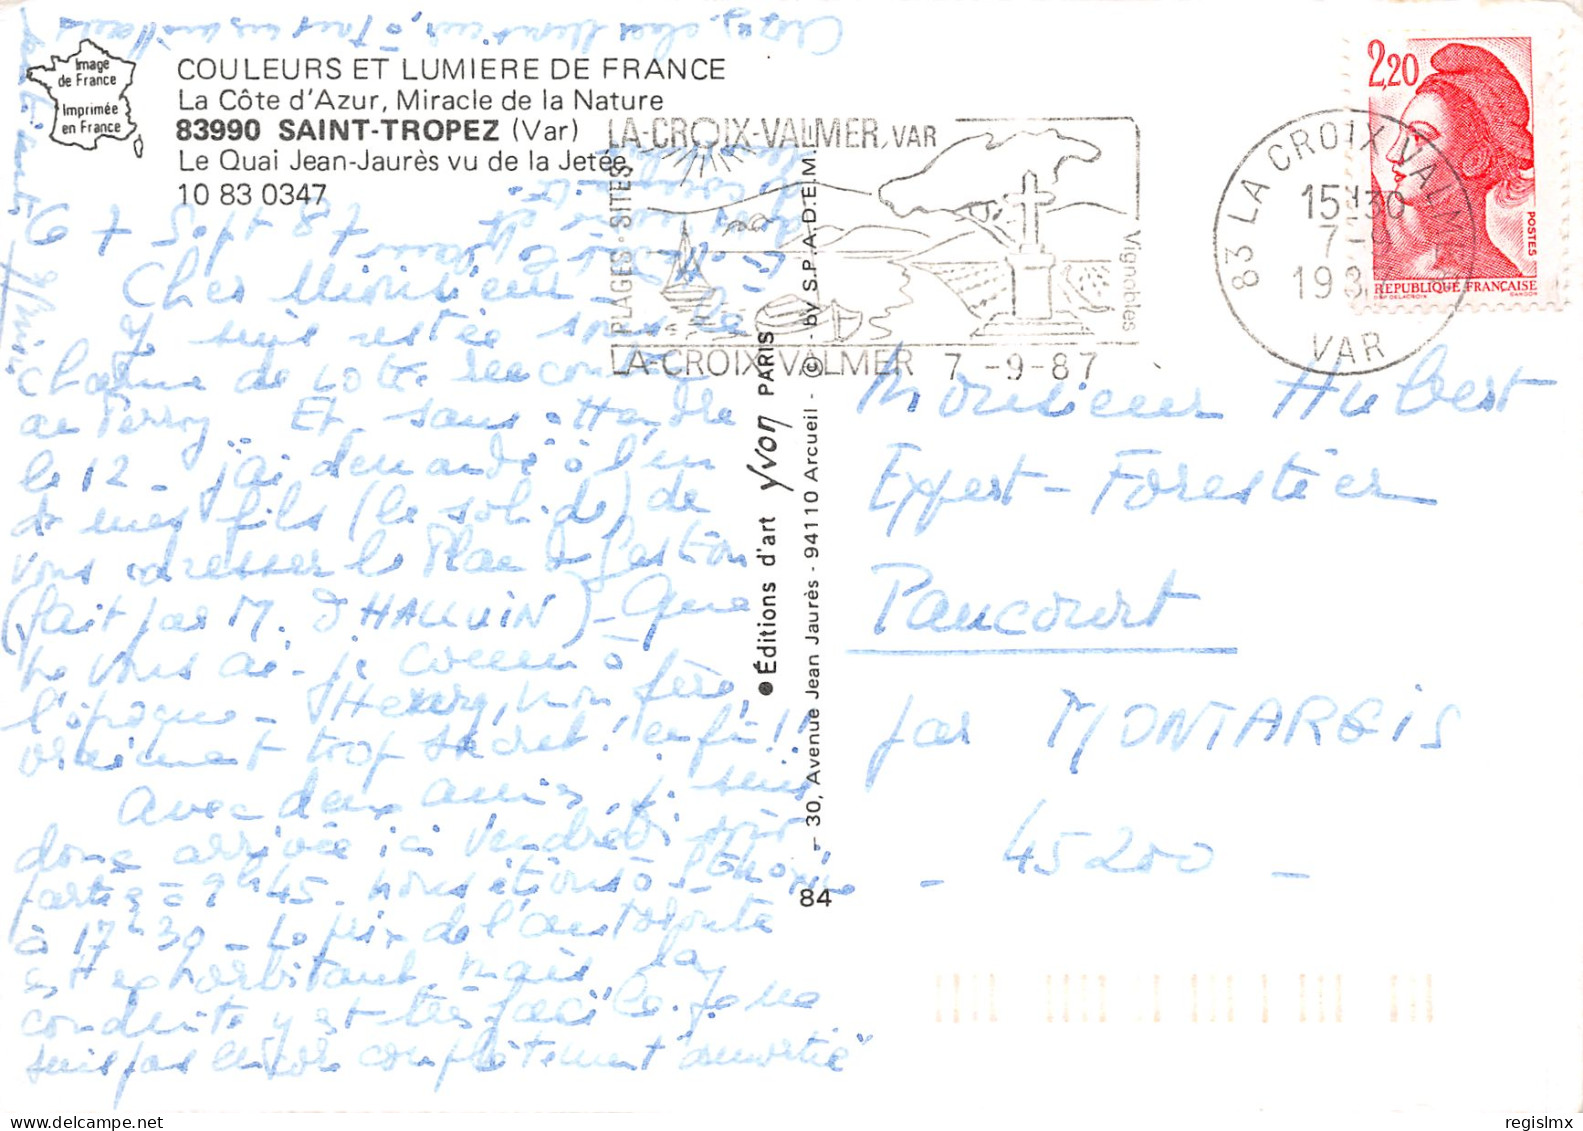 Image
de France
Imprimée
en France
COULEURS ET LUMIERE DE FRANCE
La Côte d'Azur, Miracle de la Nature
83990 SAINT-TROPEZ (Var)
Le Quai Jean-Jaurès vu de la Jetée
10 83 0347
7 Sept 87
Cher Monsieur
Je suis restée sous le
charme de votre rencontre
au Perroy. Et sans attendre
le 12 - j'ai demandé à l'un
de mes fils (le solide) de
vous adresser le Plan de Gestion
(fait par M. D'HALLUIN) - Que
ne vous ai-je connu à
l'époque - Thierry, mon frère,
vraiment trop secret! enfin!!
Avec deux amies, je suis
donc arrivée ici Vendredi soir
parties à 9h45. nous étions à
à 17h30 - Le prix de l'autoroute
est exhorbitant, mais la
conduite y est très facile. Je ne
suis pas encore complètement "amortie"
Éditions d'art Yvon PARIS
30, Avenue Jean Jaurès - 94110 Arcueil - © - by S.P.A.D.E.M.
84
LA-CROIX-VALMER, VAR
PLAGES-SITES
Vignobles
LA-CROIX-VALMER 7 -9-87
83 LA CROIX VALMER
15H30
7-9
1987
VAR
2,20
POSTES
REPUBLIQUE FRANÇAISE
D'AP DELACROIX GANDON
Monsieur Hubert
Expert-Forestier
Paucourt
par MONTARGIS
- 45200 -
regislmx